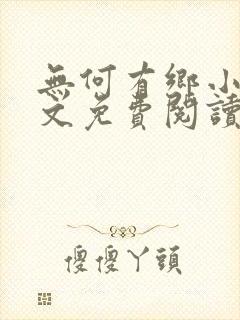 無何有鄉小
文免費閱讀
傻傻丫頭